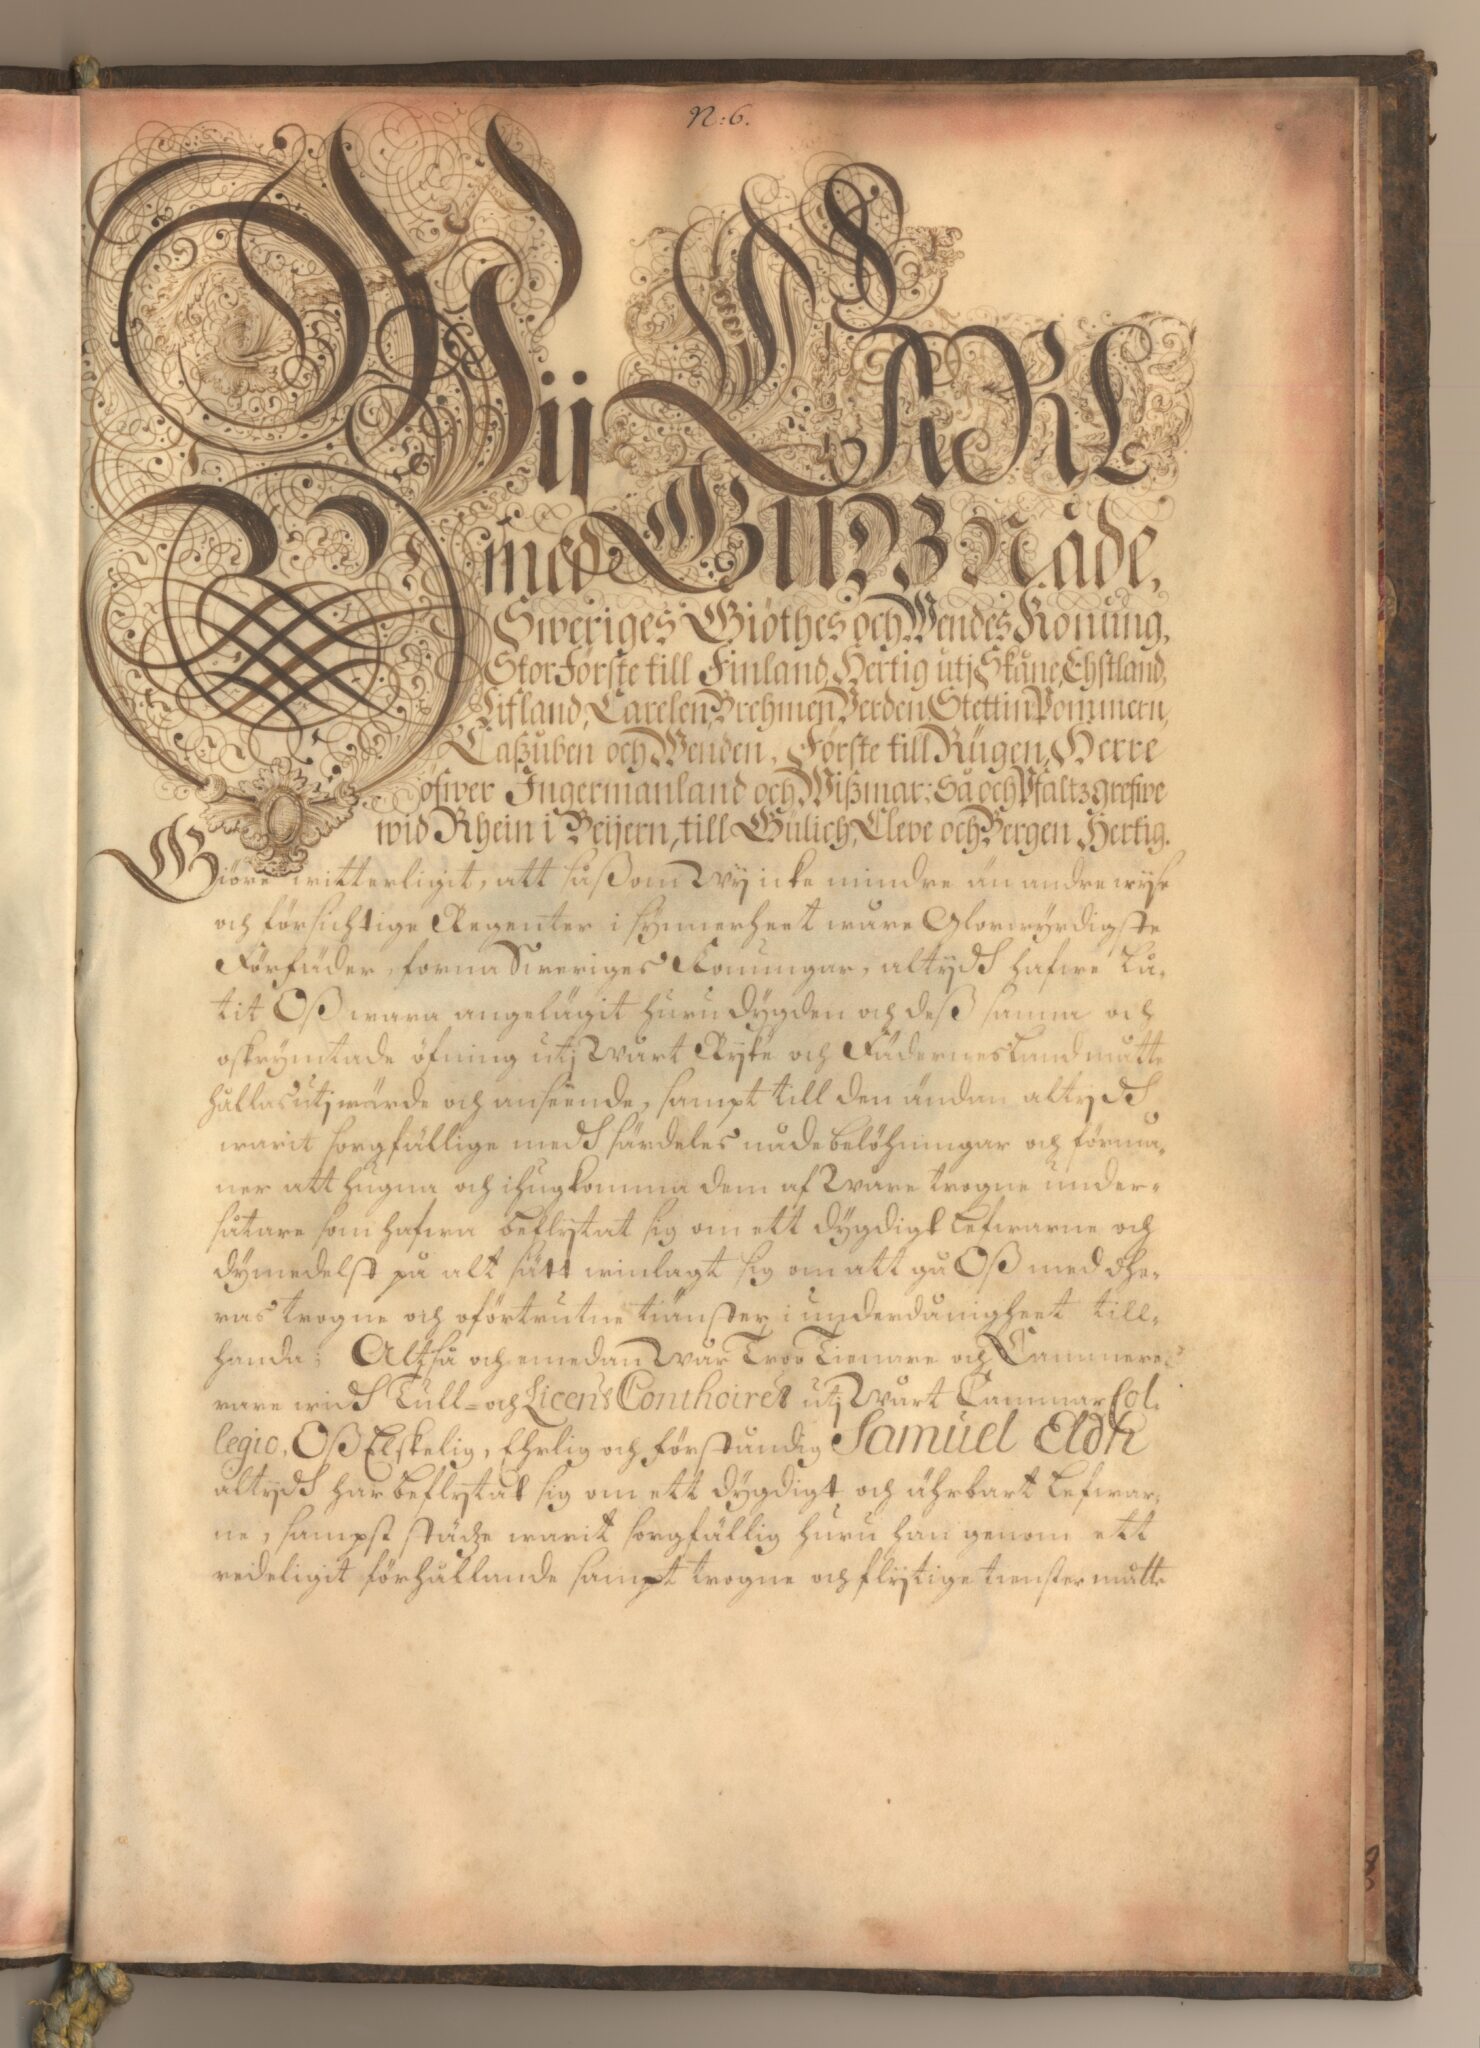 N:6.
Wij CARL
med GUDZ Nåde,
Sweriges Giöthes och Wendes Konung,
StorFörste till Finland, Hertig utj Skåne, Ehstland,
Lifland, Carelen, Brehmen, Verden, Stettin Pommern,
Caßuben och Wenden, Förste till Rügen, Herre
öfwer Ingermanland och Wißmar; Så och Pfaltzgrefwe
wid Rhein i Beijern, till Gülich, Cleve och Bergen Hertig.
Giöre witterligit, att såßom Wij icke mindre än andre wijse
och försichtige Regenter i synnerheet wåre Glorwyrdigste
Förfäder, forna Sweriges Konungar, altijdh hafwe Lå-
tit Oß wara angelägit huru dygden och deß samma och
oskrymtade öfning utj Wårt Rijke och Fäderneslandh måtte
hållas utj wärde och anseende, sampt till den ändan altijdh
warit sorgfällige medh särdeles nåde belöhningar och förmå-
ner att hugna och ihugkomma dem af Wåre trogne under-
såtare som hafwa beflijtat sig om ett dygdigt Lefwarne och
dymedelst på alt sätt winlagt sig om att gå Oß med dhe-
ras trogne och oförtrutne tiänster i underdånigheet till-
handa; Altså och emedan Wår Troo Tienare och Cammere-
rare widh Tull- och Licens Conthoiret utj Wårt Cammar Col-
legio, Oß Elskelig, Ehrlig och förståndig Samuel Eldh
altijdh har beflijtat sig om ett dygdigt och ährbart Lefwar-
ne, sampt städze warit sorgfällig huru han genom ett
redeligit förhållande sampt trogne och flijtige tienster måtte